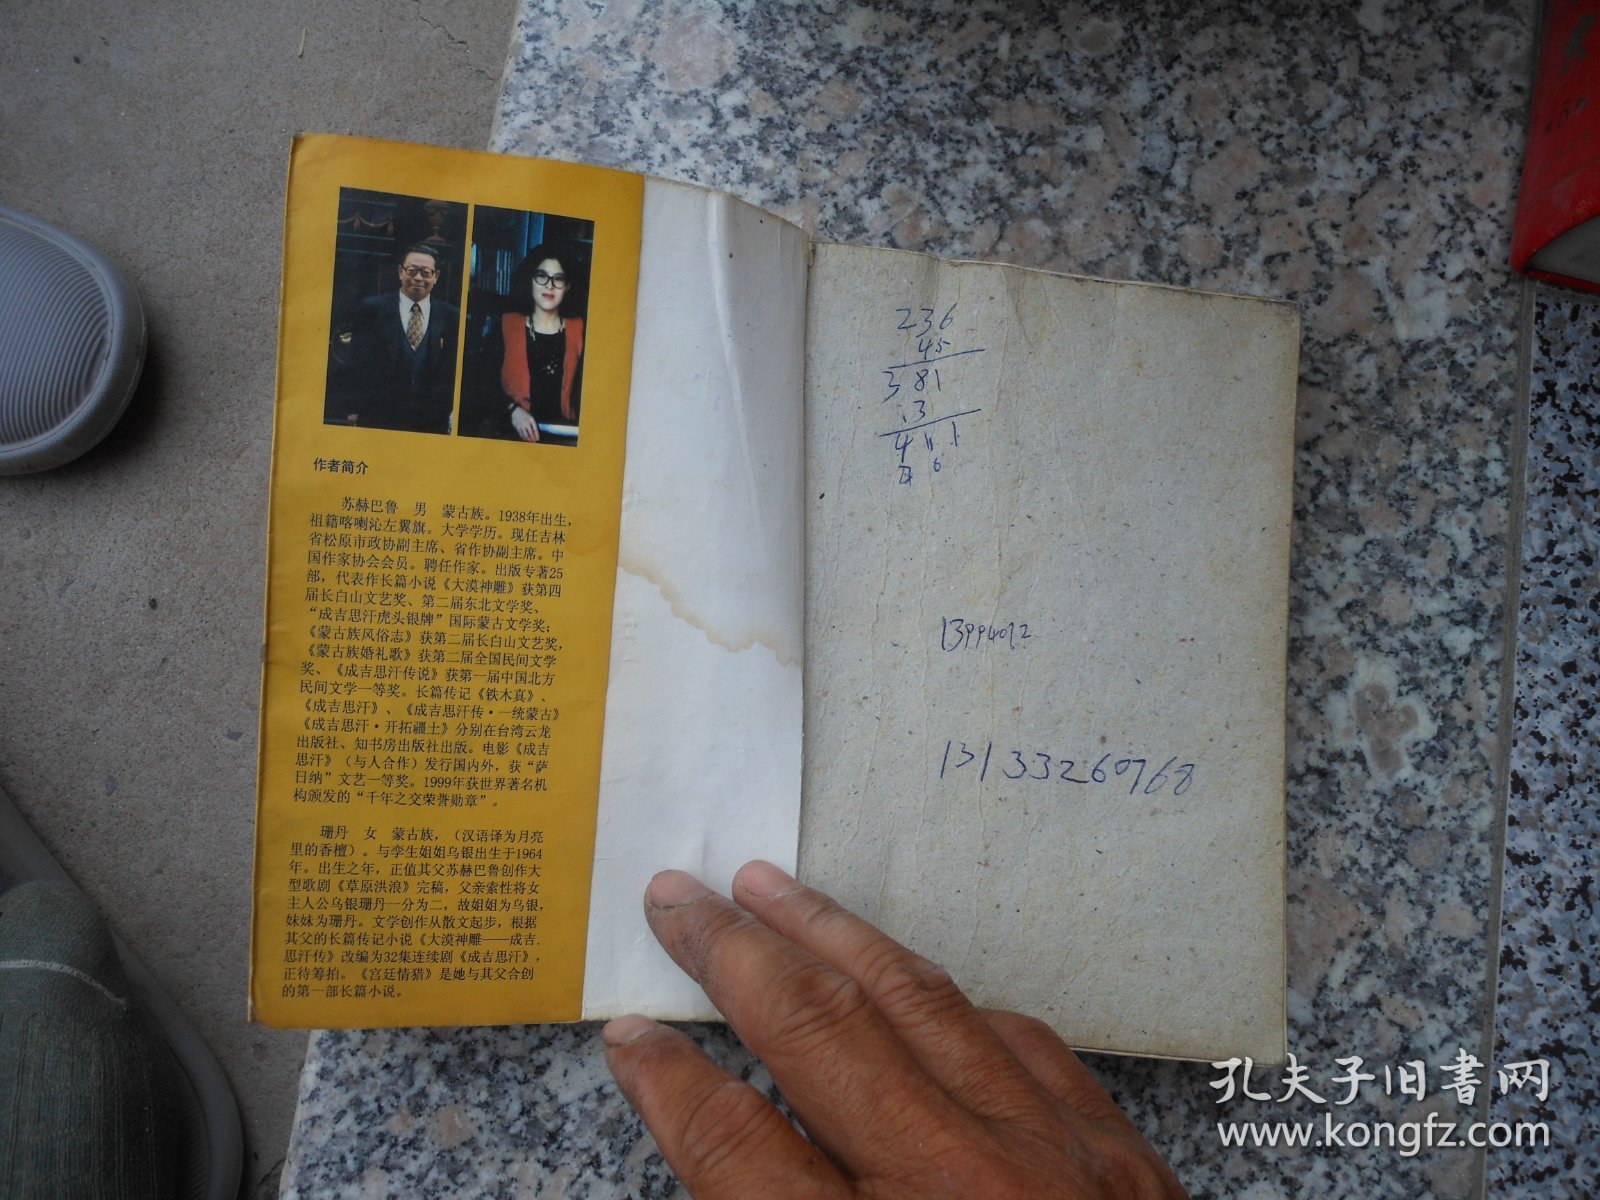 作者简介
苏赫巴鲁 男 蒙古族。1938年出生，
祖籍喀喇沁左翼旗。大学学历。现任吉林
省松原市政协副主席、省作协副主席。中
国作家协会会员。聘任作家。出版专著25
部，代表作长篇小说《大漠神雕》获第四
届长白山文艺奖、第二届东北文学奖、
“成吉思汗虎头银牌”国际蒙古文学奖；
《蒙古族风俗志》获第二届长白山文艺奖，
《蒙古族婚礼歌》获第二届全国民间文学
奖、《成吉思汗传说》获第一届中国北方
民间文学一等奖。长篇传记《铁木真》、
《成吉思汗》、《成吉思汗传·一统蒙古》
《成吉思汗·开拓疆土》分别在台湾云龙
出版社、知书房出版社出版。电影《成吉
思汗》（与人合作）发行国内外，获“萨
日纳”文艺一等奖。1999年获世界著名机
构颁发的“千年之交荣誉勋章”。
珊丹 女 蒙古族，（汉语译为月亮
里的香檀）。与孪生姐姐乌银出生于1964
年。出生之年，正值其父苏赫巴鲁创作大
型歌剧《草原洪浪》完稿，父亲索性将女
主人公乌银珊丹一分为二，故姐姐为乌银，
妹妹为珊丹。文学创作从散文起步，根据
其父的长篇传记小说《大漠神雕——成吉
思汗传》改编为32集连续剧《成吉思汗》，
正待筹拍。《宫廷情猎》是她与其父合创
的第一部长篇小说。
236
45
381
3
13994012
13133260768
孔夫子旧書网
www.kongfz.com